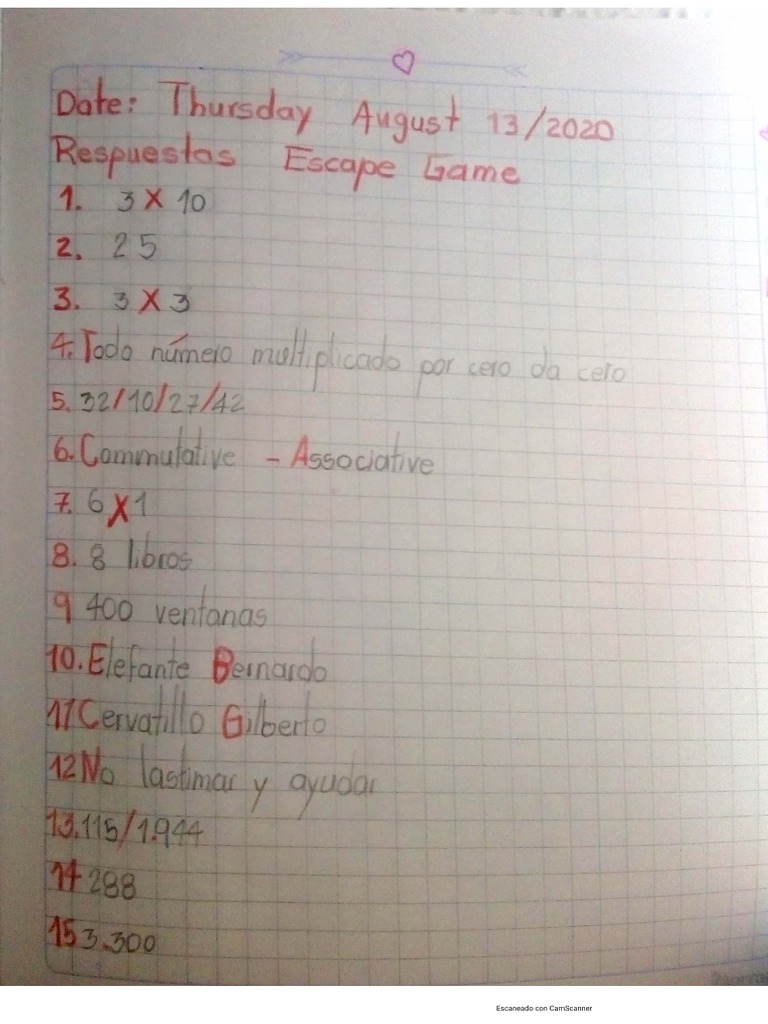 Date: Thursday August 13/2020
Respuestas Escape Game
1. 3 X 10
2. 25
3. 3 X 3
4. Todo número multiplicado por cero da cero
5. 32/10/27/42
6. Commutative - Associative
7. 6 X 1
8. 8 libros
9 400 ventanas
10. Elefante Bernardo
11 Cervatillo Gilberto
12 No lastimar y ayudar
13. 115/1.944
14 288
15 3.300
Escaneado con CamScanner